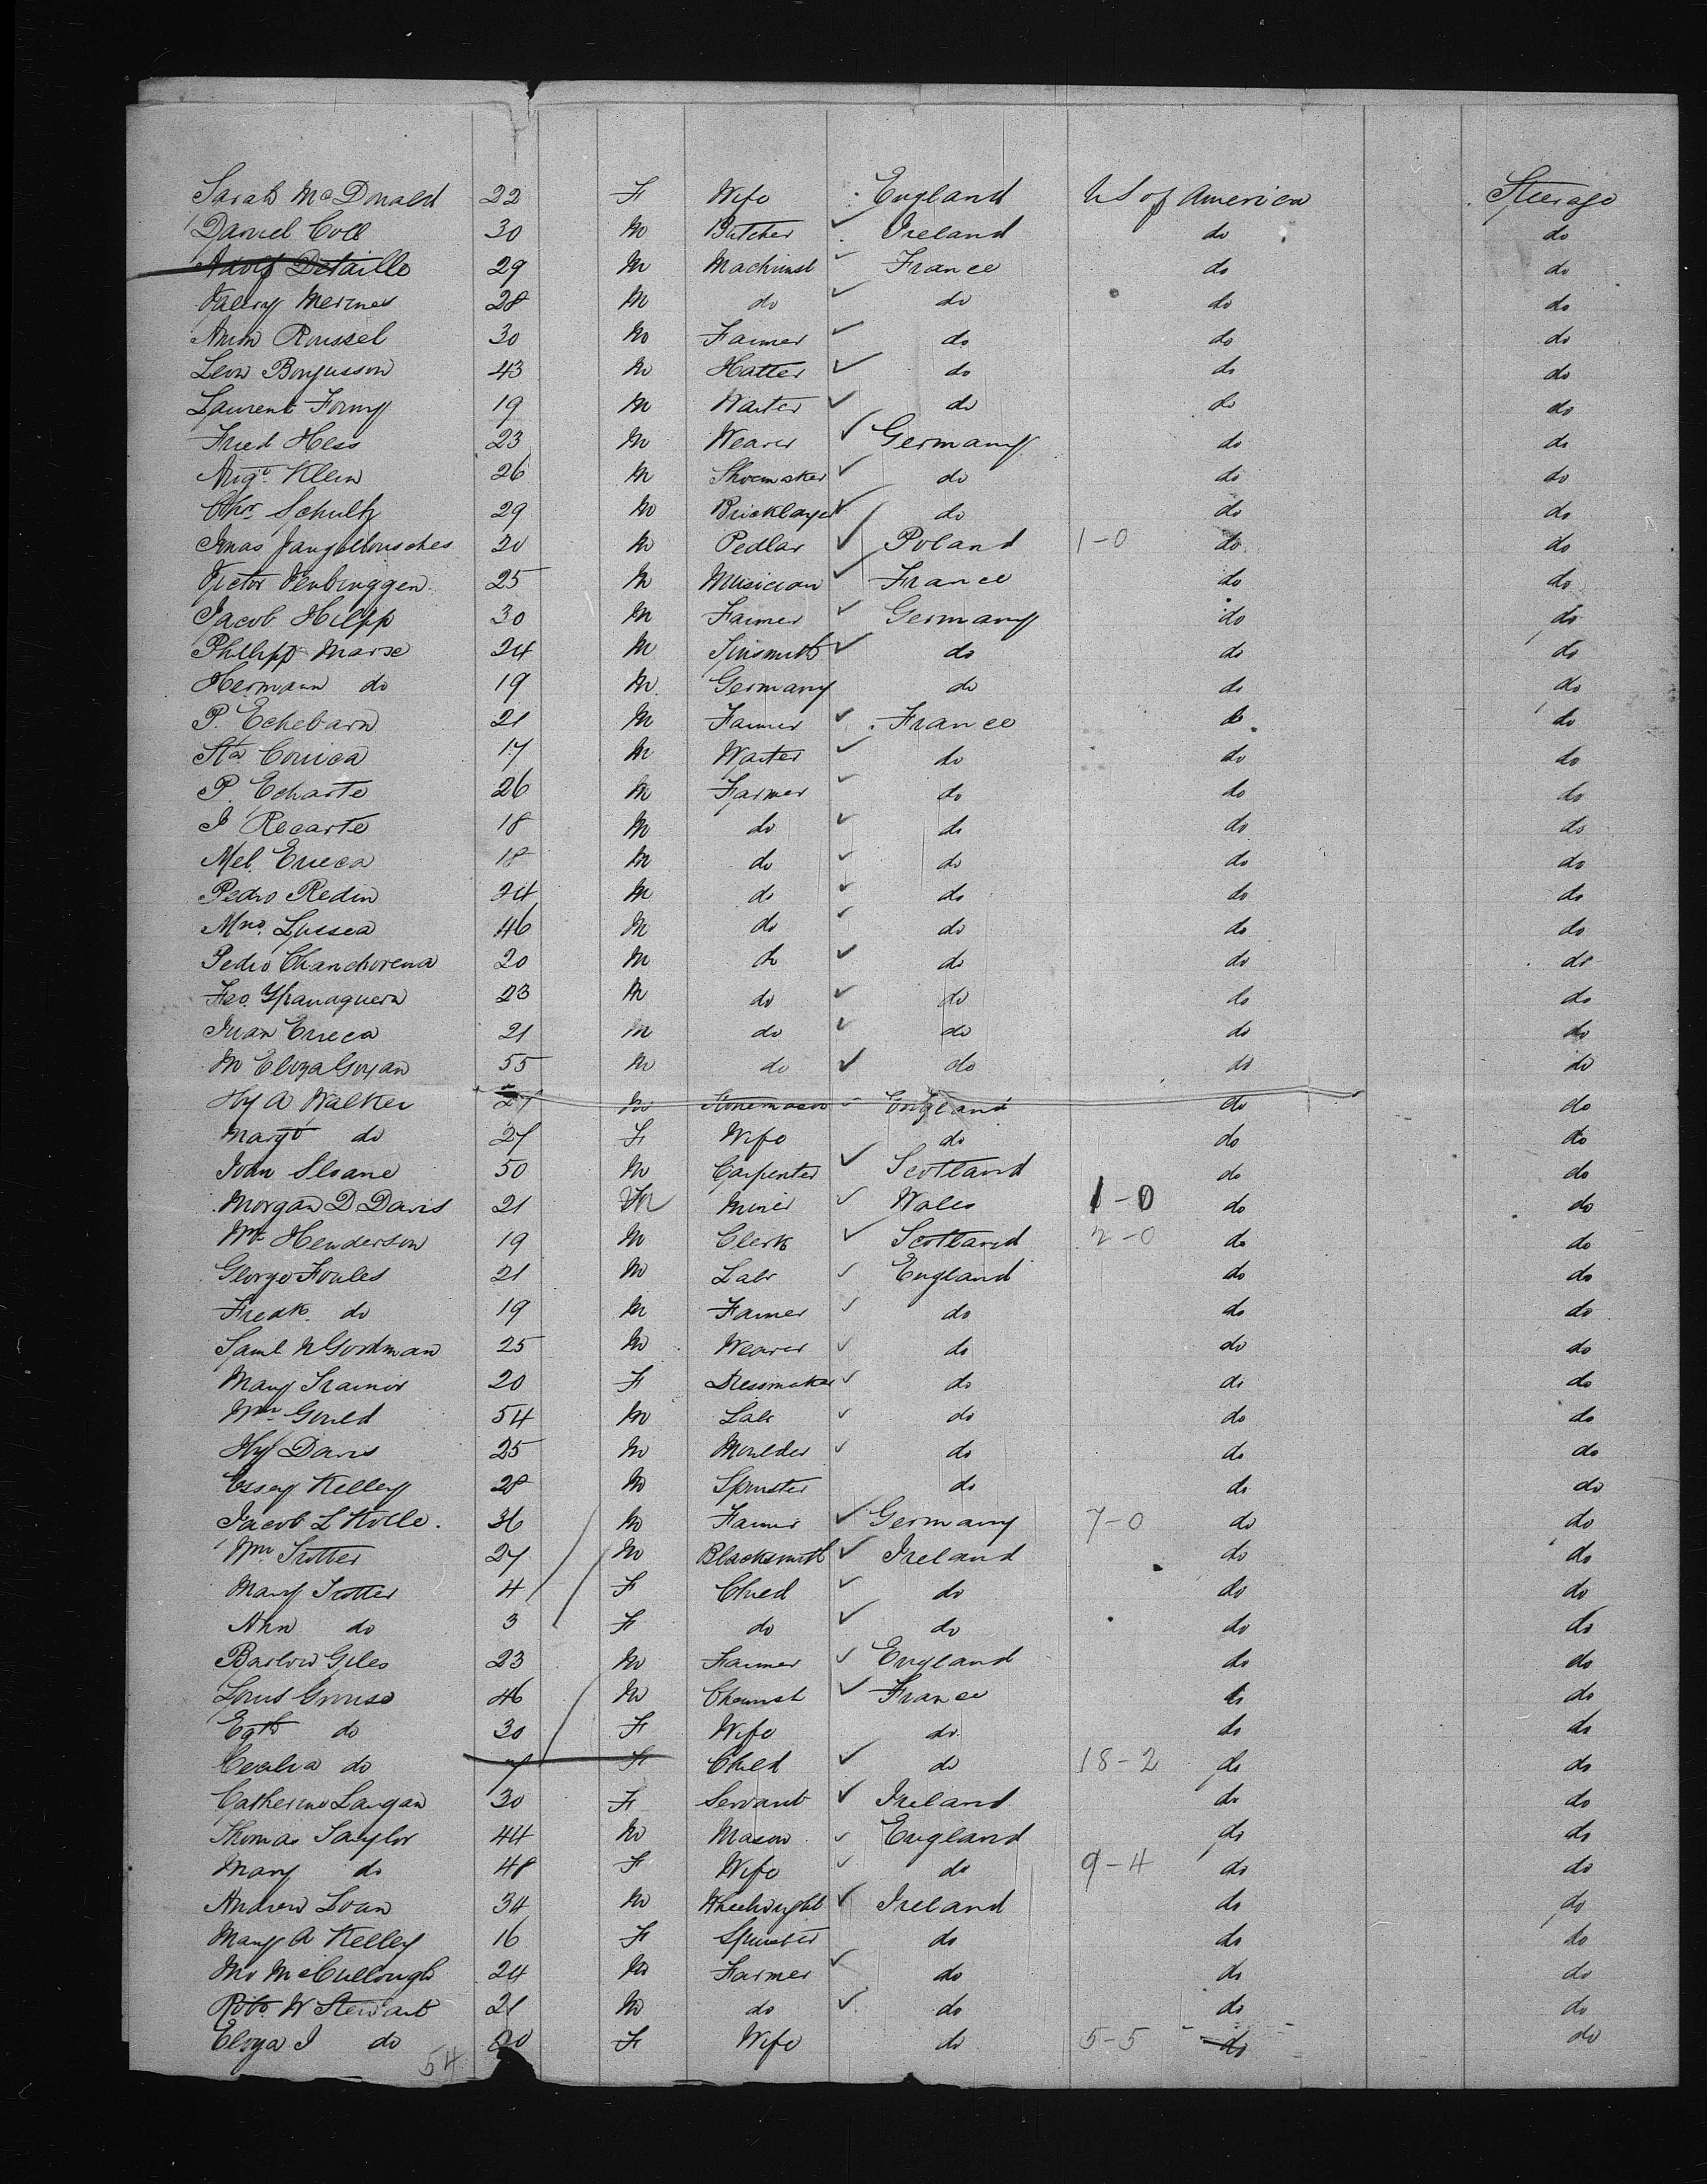 Sarah McDonald 22 F Wife England US of America Steerage
Daniel Coll 30 M Butcher Ireland do do
Adolf Detaille 29 M Machinist France do do
Valery 28 M do do do do
Roussel 30 M Farmer do do do
Leon 43 M Hatter do do do
Laurent 19 M Waiter do do do
Fried Hess 23 M Weaver Germany do do
Augt Klein 26 M Shoemaker do do do
Chr Schultz 29 M Bricklayer do do do
Jonas 20 M Pedlar Poland 1-0 do do
Victor 25 M Musician France do do
Jacob Hilpp 30 M Farmer Germany do do
Philipp Marx 24 M Tinsmith do do do
Hermann do 19 M Germany do do do
P. Echebarn 21 M Farmer France do do
17 M Waiter do do do
P. Echarte 26 M Farmer do do do
J Recarte 18 M do do do do
Mel. Erreca 18 M do do do do
Pedro Redin 24 M do do do do
Mno. 46 M do do do do
Pedro Chanchorena 20 M do do do do
Feo. 23 M do do do do
Juan Erreca 21 M do do do do
M 55 M do do do do
Hy A Walker 27 M Stonemason England do do
Margt do 27 F Wife do do do
John Sloane 50 M Carpenter Scotland do do
Morgan D Davis 21 M Miner Wales 1-0 do do
Wm Henderson 19 M Clerk Scotland 2-0 do do
George Foules 21 M Labr England do do
Fredk. do 19 M Farmer do do do
Saml N Gordman 25 M Weaver do do do
Mary Trainor 20 F Dressmaker do do do
Wm Gould 54 M Labr do do do
Hy Davis 25 M Moulder do do do
Essey Kelley 28 M Spinster do do do
Jacob L Kolle. 36 M Farmer Germany 7-0 do do
Wm Trotter 27 M Blacksmith Ireland do do
Mary Trotter 4 F Child do do do
Ann do 3 F do do do do
Barlow Giles 23 M Farmer England do do
Louis 46 M Chemist France do do
Egth do 30 F Wife do do do
Cecilia do 7 F Child do 18-2 do do
Catherine Langan 30 F Servant Ireland do do
Thomas Taylor 44 M Mason England do do
Mary do 48 F Wife do 9-4 do do
Andrew Loan 34 M Wheelwright Ireland do do
Mary A Kelley 16 F Spinster do do do
Jno McCullough 24 M Farmer do do do
Robt. W Stewart 21 M do do do do
Eliza J do 20 F Wife do 5-5 do do
54